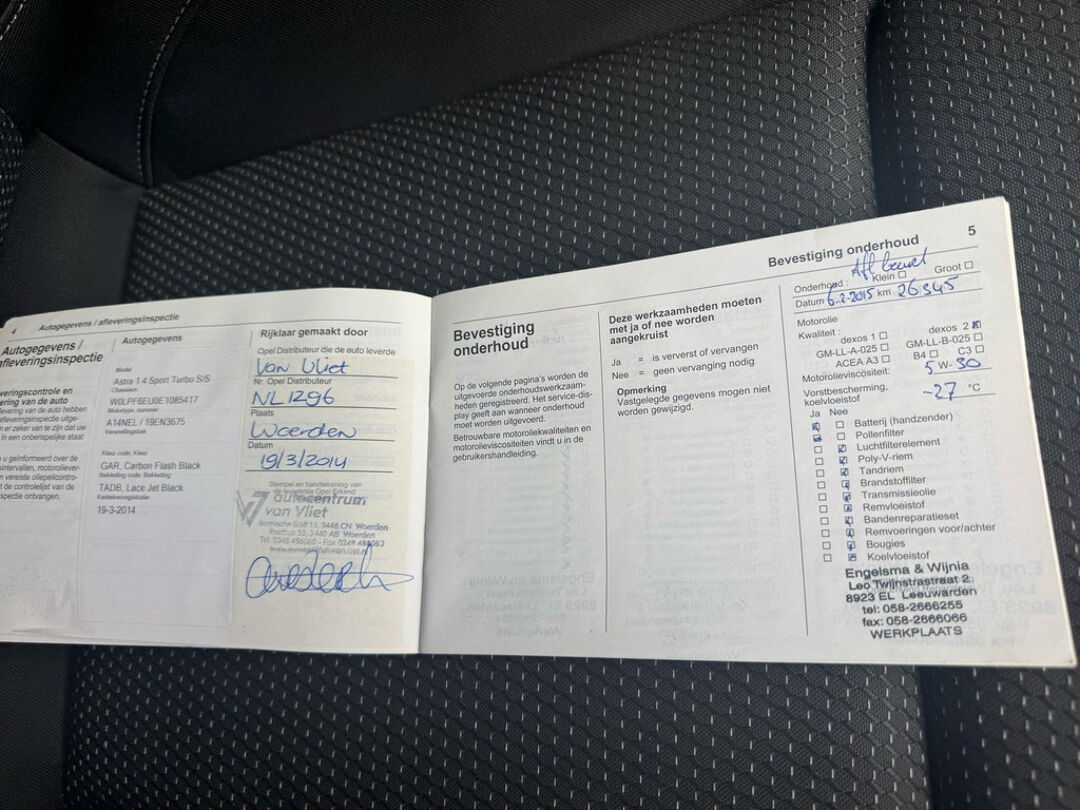 4
Autogegevens / afleveringsinspectie
Autogegevens /
afleveringsinspectie
veringscontrole en
ering van de auto
levering van de auto hebben
afleveringsinspectie uitge-
er zeker van te zijn dat uw
in een onberispelijke staat
u geïnformeerd over de
intervallen, motoroliever-
vereiste oliepeilcontrol-
de controlelijst van de
spectie ontvangen.
Autogegevens
Model
Astra 1.4 Sport Turbo S/S
Chassisnr.
W0LPF6EU0E1085417
A14NEL / 19EN3675
Kleur code. Kleur
GAR, Carbon Flash Black
Bekleding code. Bekleding
TADB, Lace Jet Black
Kentekenregistratie
19-3-2014
Rijklaar gemaakt door
Opel Distributeur die de auto leverde
Van Vliet
Nr. Opel Distributeur
NL1296
Plaats
Woerden
Datum
19/3/2014
Stempel en handtekening van
de leverende Opel Erkend
autocentrum
van Vliet
3446 CN Woerden
Postbus 53, 3440 AB Woerden
Bevestiging
onderhoud
Op de volgende pagina's worden de
uitgevoerde onderhoudswerkzaam-
heden geregistreerd. Het service-dis-
play geeft aan wanneer onderhoud
moet worden uitgevoerd.
Betrouwbare motoroliekwaliteiten en
motorolieviscositeiten vindt u in de
gebruikershandleiding.
Deze werkzaamheden moeten
met ja of nee worden
aangekruist
Ja = is ververst of vervangen
Nee = geen vervanging nodig
Opmerking
Vastgelegde gegevens mogen niet
worden gewijzigd.
Bevestiging onderhoud
5
Afl beurt
Onderhoud: Klein Groot
Datum 6-2-2015 km 26345
Motorolie
Kwaliteit: dexos 1 dexos 2
GM-LL-A-025 GM-LL-B-025
ACEA A3 B4 C3
Motorolieviscositeit: 5 W- 30
Vorstbescherming,
koelvloeistof -27 °C
Ja Nee
Batterij (handzender)
Pollenfilter
Luchtfilterelement
Poly-V-riem
Tandriem
Brandstoffilter
Transmissieolie
Remvloeistof
Bandenreparatieset
Remvoeringen voor/achter
Bougies
Koelvloeistof
Engelsma & Wijnia
Leo Twijnstrastraat 2
8923 EL Leeuwarden
tel: 058-2666255
fax: 058-2666066
WERKPLAATS